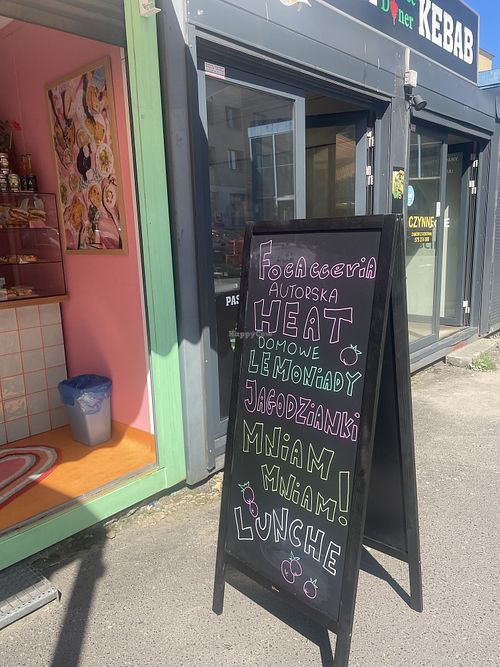 Döner KEBAB
CZYNNE
PAS
Focacceria
AUTORSKA
HEAT
DOMOWE
LEMONIADY
JAGODZIANKI
MNIAM
MNIAM!
LUNCHE
HappyCow